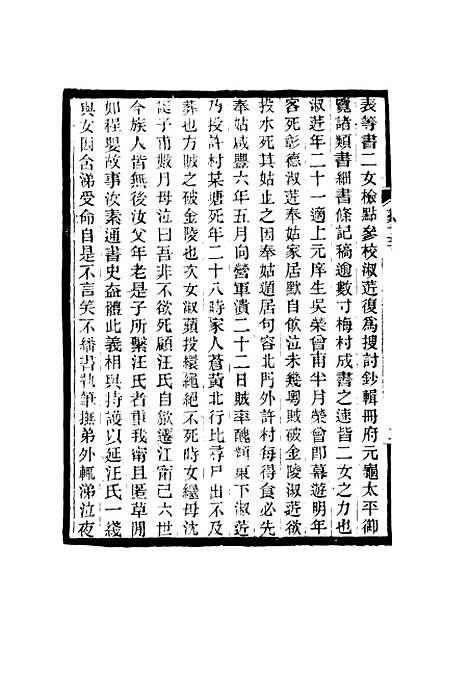 表等書二女檢點參校淑蓮復為搜討鈔輯冊府元龜太平御
覽諸類書細書條記稿逾數寸梅村成書之速皆二女之力也
淑蓮年二十一適上元庠生吳榮曾甫半月榮曾即幕遊明年
客死彰德淑蓮奉姑家居默自飲泣未幾粵賊破金陵淑蓮欲
投水死其姑止之因奉姑遁居句容北門外許村每得食必先
奉姑咸豐六年五月向營軍潰二十二日賊率醜類東下淑蓮
乃投許村某塘死年二十八時家人蒼黃北行比尋尸出不及
葬也方賊之破金陵也次女淑蘋投繯繩絕不死時女繼母沈
誕子甫數月母泣曰吾非不欲死顧汪氏自歙遷江甯已六世
今族人皆無後汝父年老是子所繫汪氏者重我甯且匿草間
如程嬰故事汝素通書史盍體此義相與持護以延汪氏一綫
與女因含涕受命自是不言笑不繙書執筆撫弟外輒涕泣夜